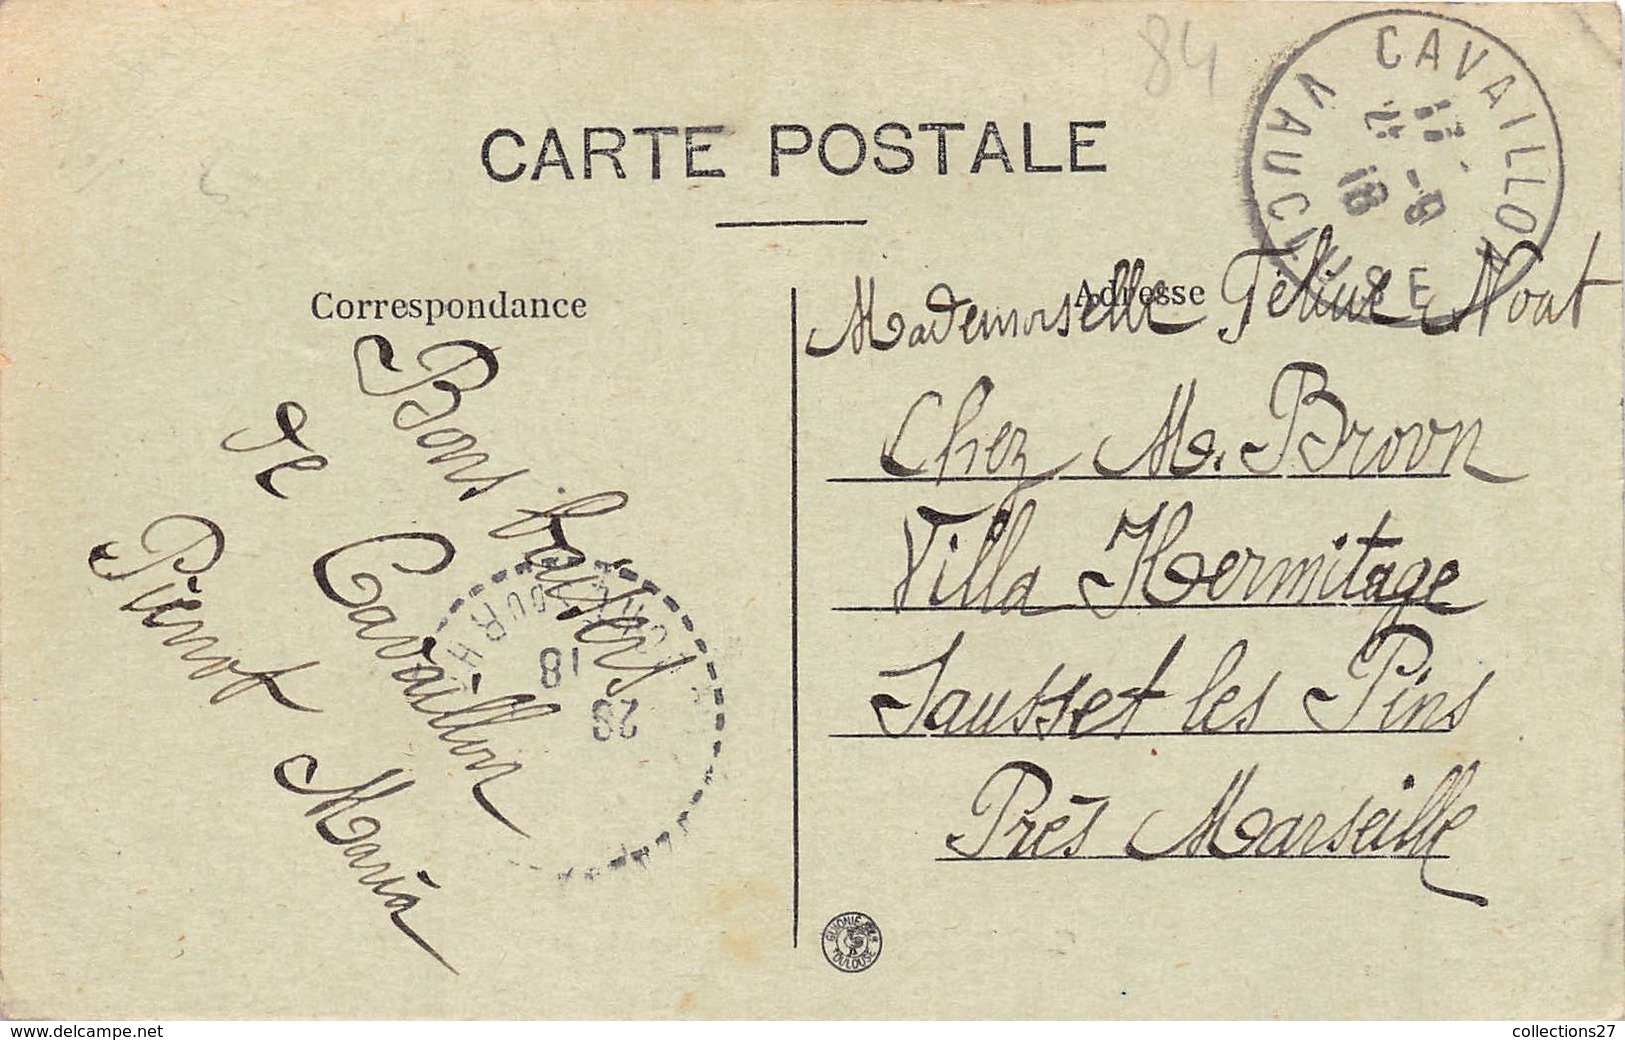 84
CAVAILLON
VAUCLUSE
18
CARTE POSTALE
Correspondance
Adresse
Bons baisers
de Cavaillon
Pierrot Maria
Mademoiselle Féline Noat
Chez M. Brovn
Villa Hermitage
Sausset les Pins
Près Marseille
18
29
TOULOUSE
www.delcampe.net
collections27